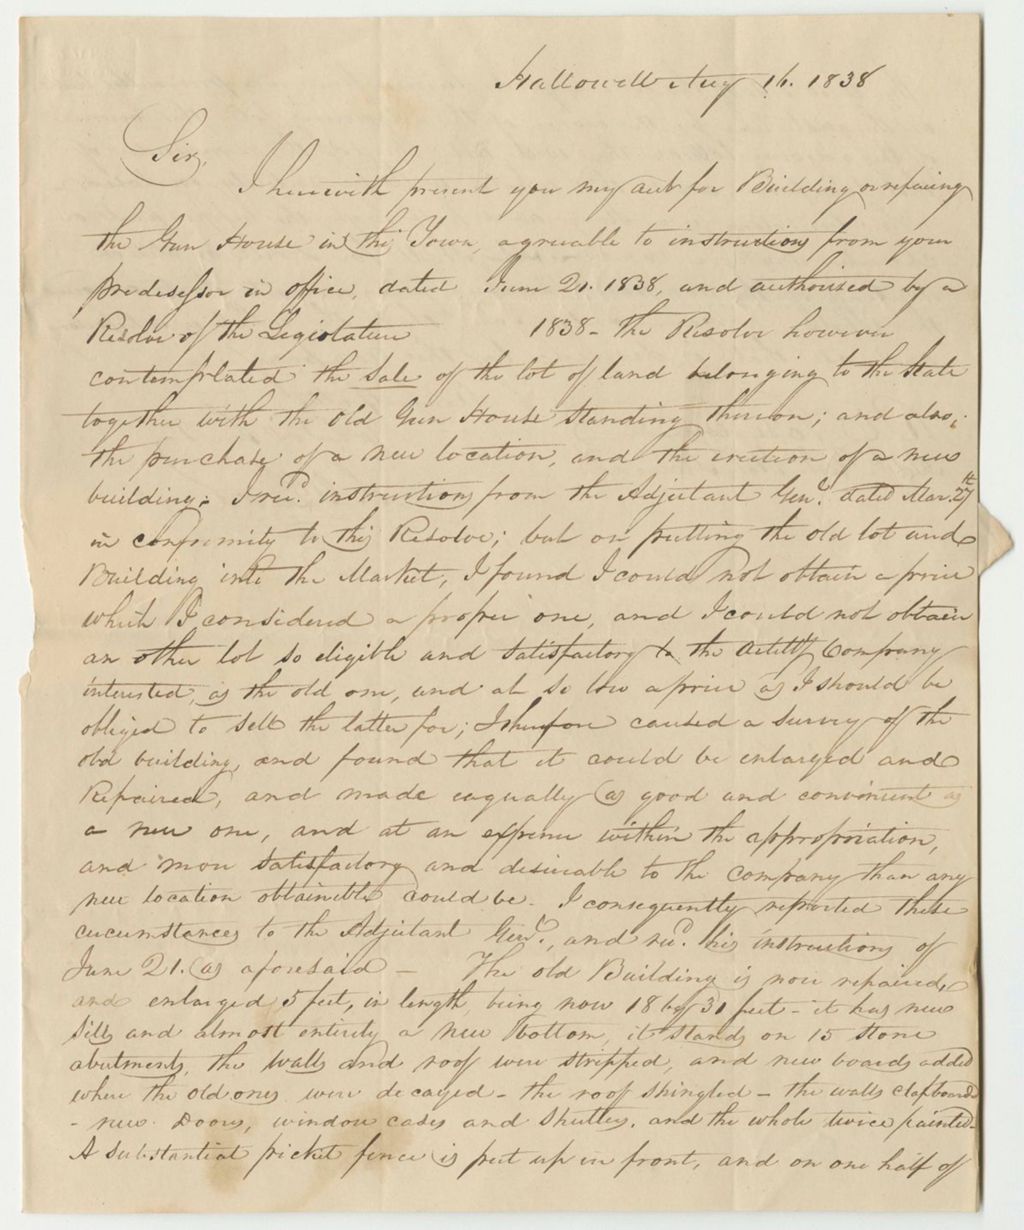 Hallowell Aug 16. 1838
Sir,
I herewith present you my acct for Building or repairing
the Gun House in this Town, agreeable to instructions from your
predesessor in office, dated June 21. 1838, and authorised by a
Resolve of the Legislature 1838 - the Resolve however
contemplated the sale of the lot of land belonging to the State
together with the old Gun House standing thereon; and also,
the purchase of a new location, and the erection of a new
building. I recd. instructions from the Adjutant Genl. dated Mar. 27th
in conformity to this Resolve; but on putting the old lot and
Building into the Market, I found I could not obtain a price
which I considered a proper one, and I could not obtain
an other lot so eligible and satisfactory to the Artilly Company
interested, as the old one, and at so low a price as I should be
obliged to sell the latter for; I therefore caused a survey of the
old building, and found that it could be enlarged and
Repaired, and made eaqually as good and convenient as
a new one, and at an expense within the appropriation,
and more satisfactory and desireable to the company than any
new location obtainable could be. I consequently reported these
circumstances to the Adjutant Genl., and recd. his instructions of
June 21. as aforesaid - The old Building is now repaired,
and enlarged 5 feet, in length, being now 18 by 31 feet - it has new
Sills and almost entirely a new bottom, it stands on 15 stone
abutments, the walls and roof were stripped, and new boards added
where the old ones were decayed - the roof shingled - the walls clapboarded
- new Doors, window cases and shutters, and the whole twice painted -
A substantial picket fence is put up in front, and on one half of